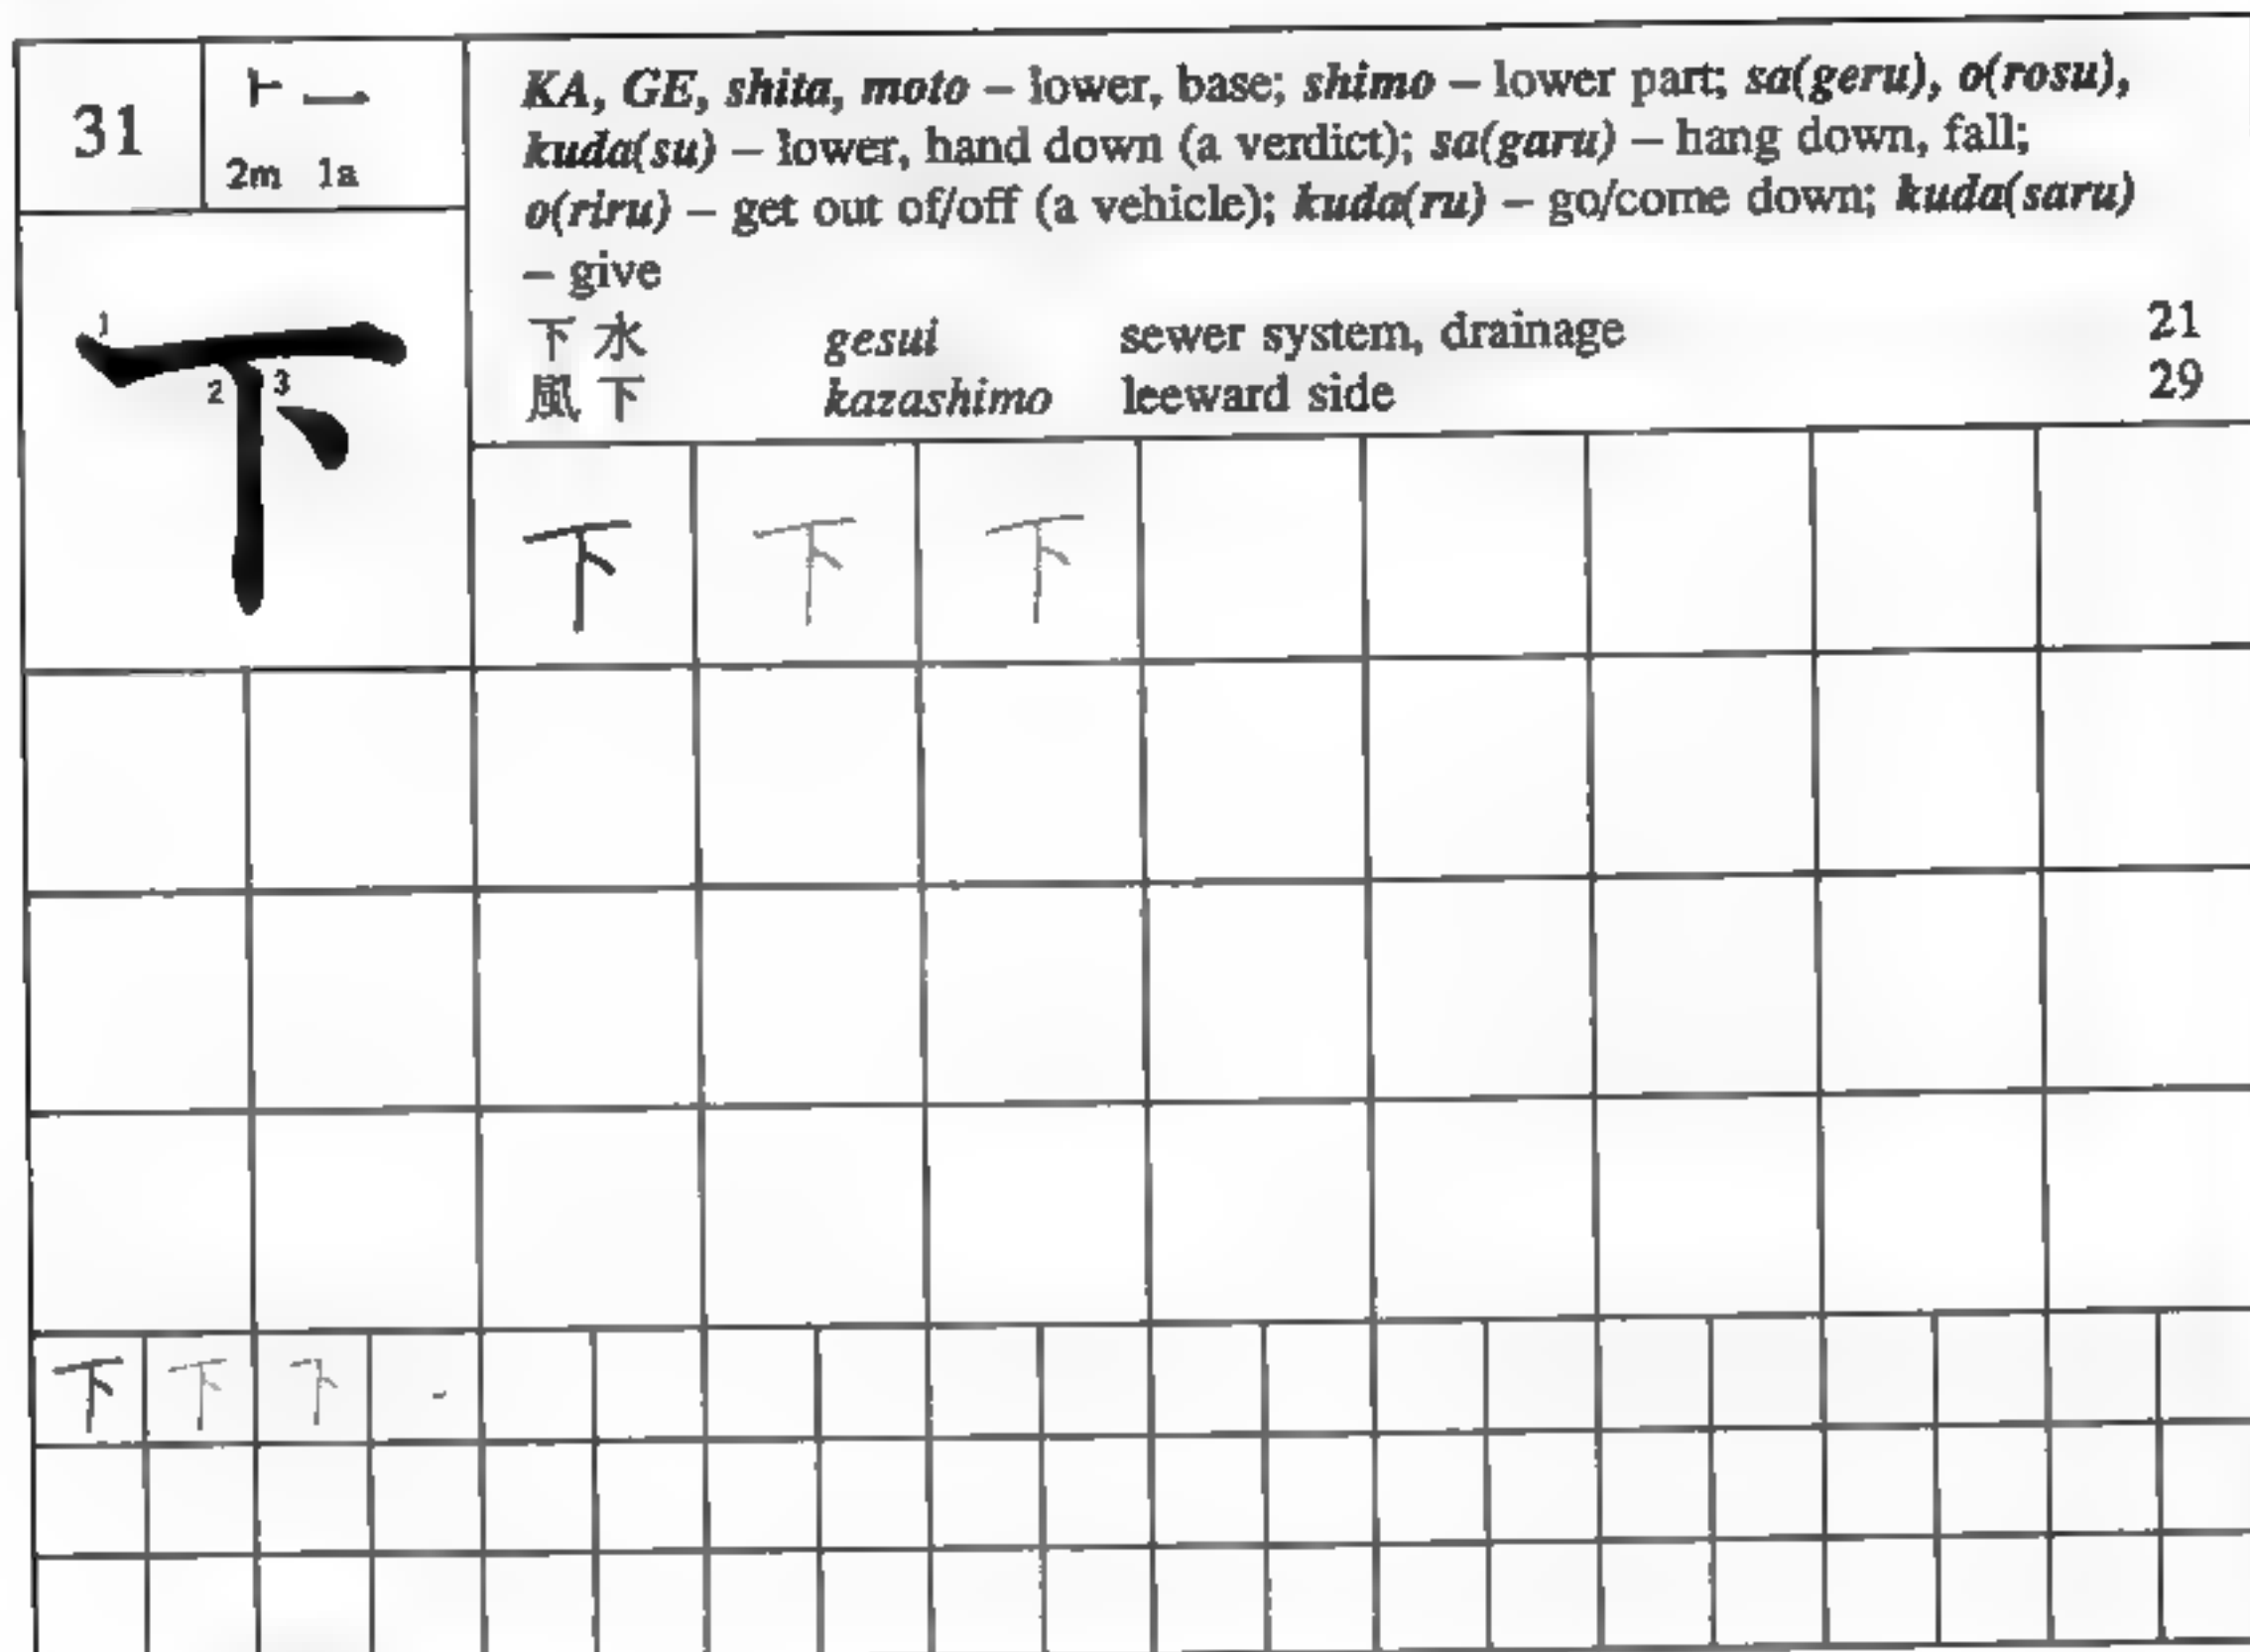 31
⊢ 一
2m 1a
KA, GE, shita, moto – lower, base; shimo – lower part; sa(geru), o(rosu),
kuda(su) – lower, hand down (a verdict); sa(garu) – hang down, fall;
o(riru) – get out of/off (a vehicle); kuda(ru) – go/come down; kuda(saru)
– give
下水 gesui sewer system, drainage 21
風下 kazashimo leeward side 29
1
2 3
下
下 下 下
下 下 下